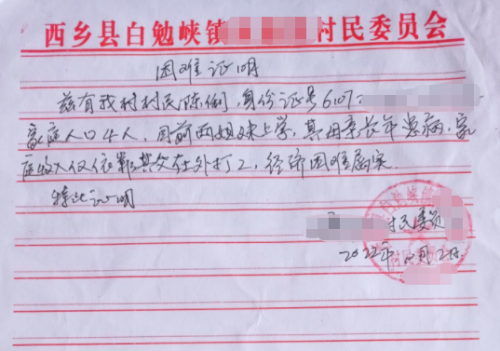 西乡县白勉峡镇 村民委员会
困难证明
兹有我村村民陈 身份证号6107
家庭人口4人,目前两姐妹上学,其母亲长年患病,家
庭收入仅依靠其父在外打工,经济困难属实.
特此证明
村民委员
2022年 月2日